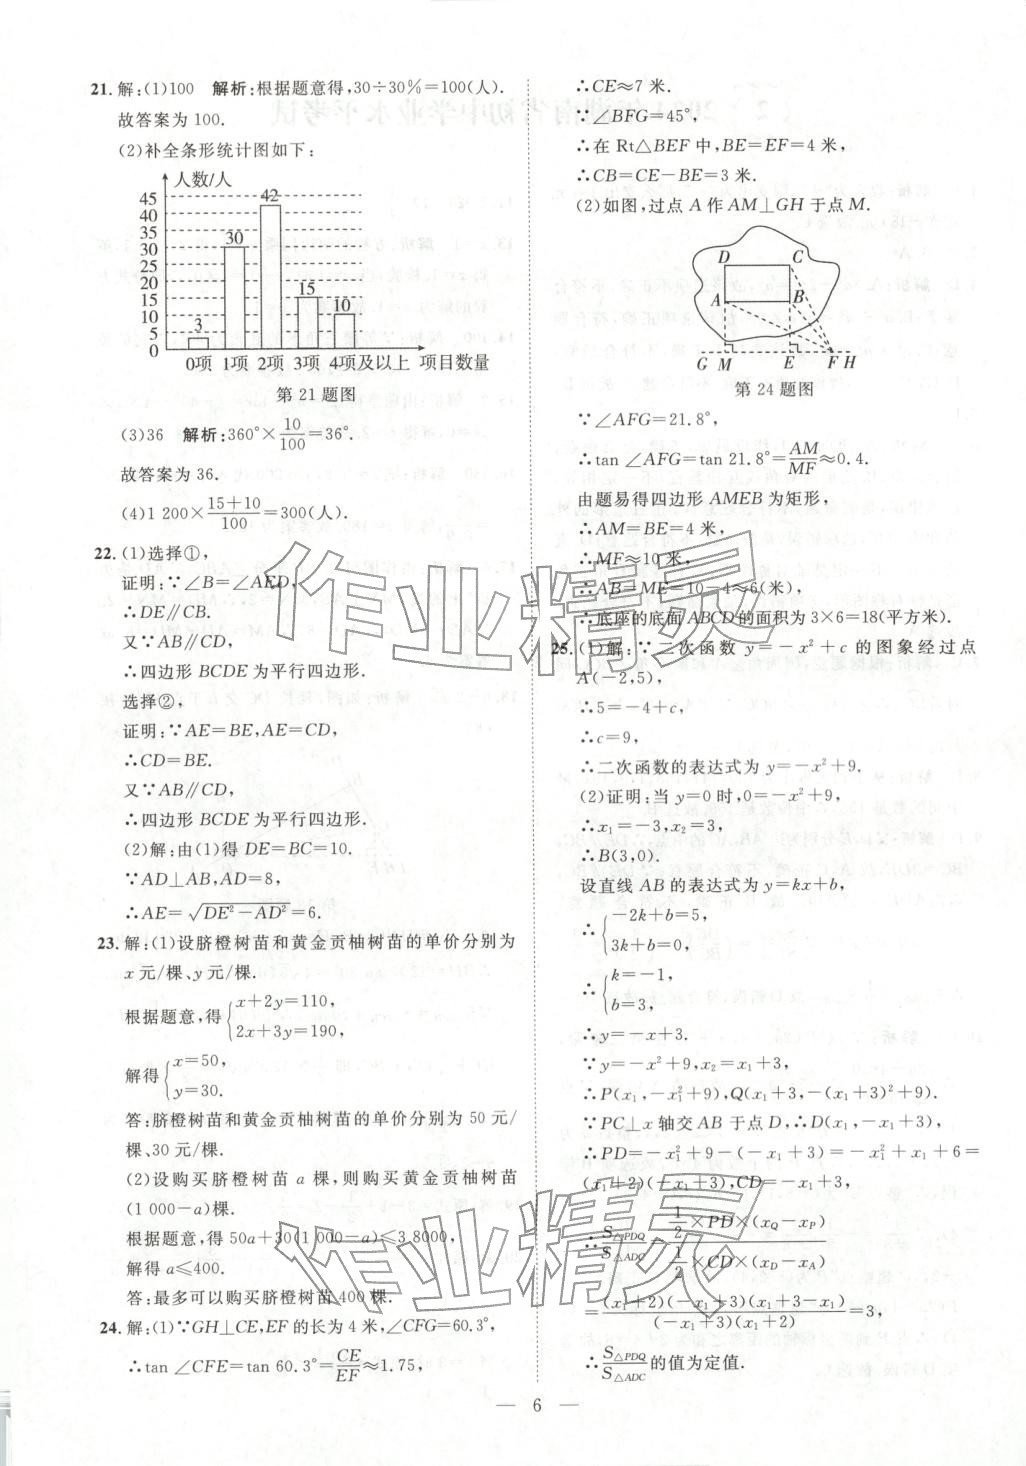 21. 解:(1)100 解析:根据题意得,30÷30%=100(人).
故答案为 100.
(2)补全条形统计图如下:
人数/人
45
40
35
30
25
20
15
10
5
0
3
30
42
15
10
0项 1项 2项 3项 4项及以上 项目数量
第 21 题图
(3)36 解析:360°×10/100=36°.
故答案为 36.
(4)1 200×(15+10)/100=300(人).
22. (1)选择①,
证明:∵∠B=∠AED,
∴DE∥CB.
又∵AB∥CD,
∴四边形 BCDE 为平行四边形.
选择②,
证明:∵AE=BE,AE=CD,
∴CD=BE.
又∵AB∥CD,
∴四边形 BCDE 为平行四边形.
(2)解:由(1)得 DE=BC=10.
∵AD⊥AB,AD=8,
∴AE=√(DE²-AD²)=6.
23. 解:(1)设脐橙树苗和黄金贡柚树苗的单价分别为
x 元/棵、y 元/棵.
根据题意,得{x+2y=110,
2x+3y=190,
解得{x=50,
y=30.
答:脐橙树苗和黄金贡柚树苗的单价分别为 50 元/
棵、30 元/棵.
(2)设购买脐橙树苗 a 棵,则购买黄金贡柚树苗
(1 000-a)棵.
根据题意,得 50a+30(1 000-a)≤3 8000,
解得 a≤400.
答:最多可以购买脐橙树苗 400 棵.
24. 解:(1)∵GH⊥CE,EF 的长为 4 米,∠CFG=60.3°,
∴tan ∠CFE=tan 60.3°=CE/EF≈1.75,
∴CE≈7 米.
∵∠BFG=45°,
∴在 Rt△BEF 中,BE=EF=4 米,
∴CB=CE-BE=3 米.
(2)如图,过点 A 作 AM⊥GH 于点 M.
D C
A B
G M E F H
第 24 题图
∵∠AFG=21.8°,
∴tan ∠AFG=tan 21.8°=AM/MF≈0.4.
由题易得四边形 AMEB 为矩形,
∴AM=BE=4 米,
∴MF≈10 米,
∴AB=ME=10-4≈6(米).
∴底座的底面 ABCD 的面积为 3×6=18(平方米).
25. (1)解:∵二次函数 y=-x²+c 的图象经过点
A(-2,5),
∴5=-4+c,
∴c=9,
∴二次函数的表达式为 y=-x²+9.
(2)证明:当 y=0 时,0=-x²+9,
∴x₁=-3,x₂=3,
∴B(3,0).
设直线 AB 的表达式为 y=kx+b,
∴{-2k+b=5,
3k+b=0,
∴{k=-1,
b=3,
∴y=-x+3.
∵y=-x²+9,x₂=x₁+3,
∴P(x₁,-x₁²+9),Q(x₁+3,-(x₁+3)²+9).
∵PC⊥x 轴交 AB 于点 D,∴D(x₁,-x₁+3),
∴PD=-x₁²+9-(-x₁+3)=-x₁²+x₁+6=
(x₁+2)(-x₁+3),CD=-x₁+3,
∴S△PDQ/S△ADC=(1/2×PD×(xQ-xP))/(1/2×CD×(xD-xA))
=(x₁+2)(-x₁+3)(x₁+3-x₁)/(-x₁+3)(x₁+2)=3,
∴S△PDQ/S△ADC的值为定值.
— 6 —
作业精灵
作业精灵